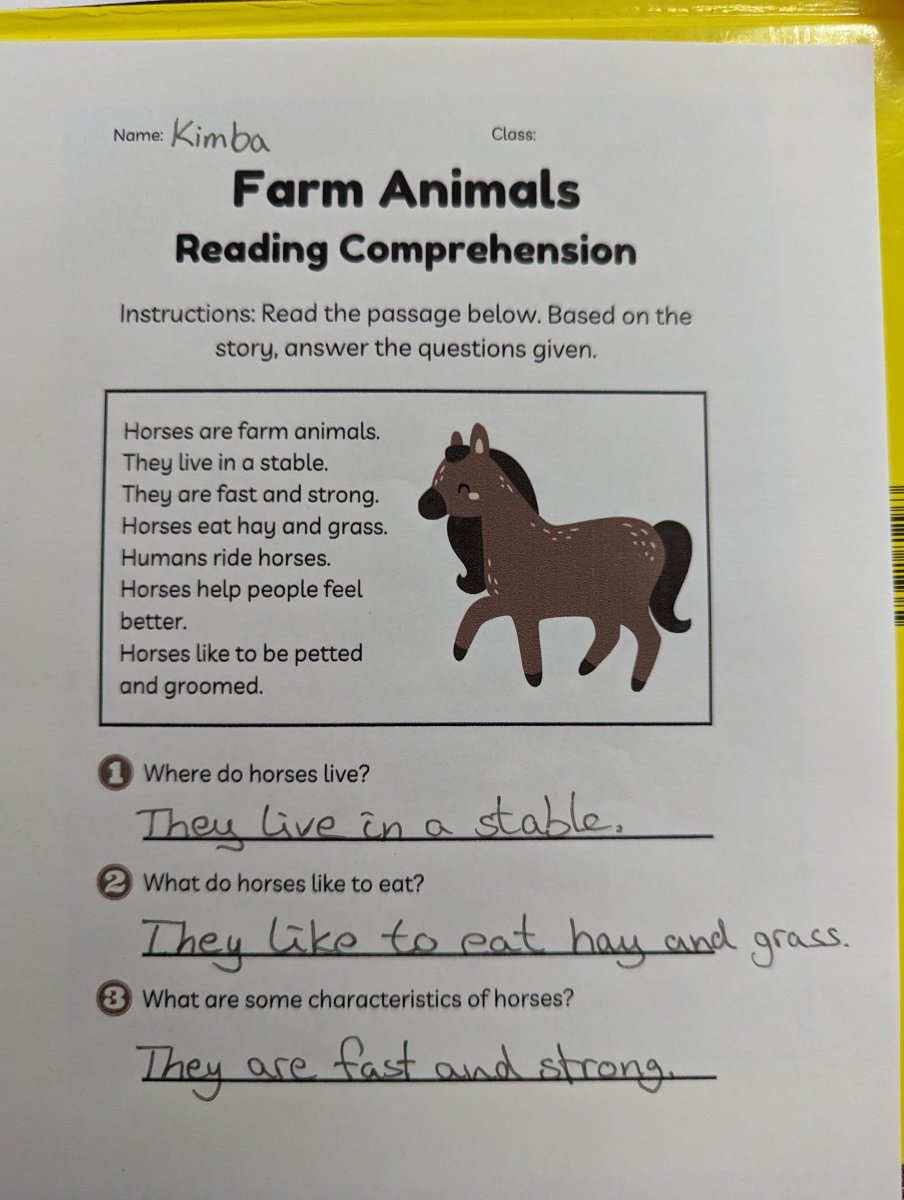 Name: Kimba Class:
Farm Animals
Reading Comprehension
Instructions: Read the passage below. Based on the
story, answer the questions given.
Horses are farm animals.
They live in a stable.
They are fast and strong.
Horses eat hay and grass.
Humans ride horses.
Horses help people feel
better.
Horses like to be petted
and groomed.
1 Where do horses live?
They live in a stable.
2 What do horses like to eat?
They like to eat hay and grass.
3 What are some characteristics of horses?
They are fast and strong.